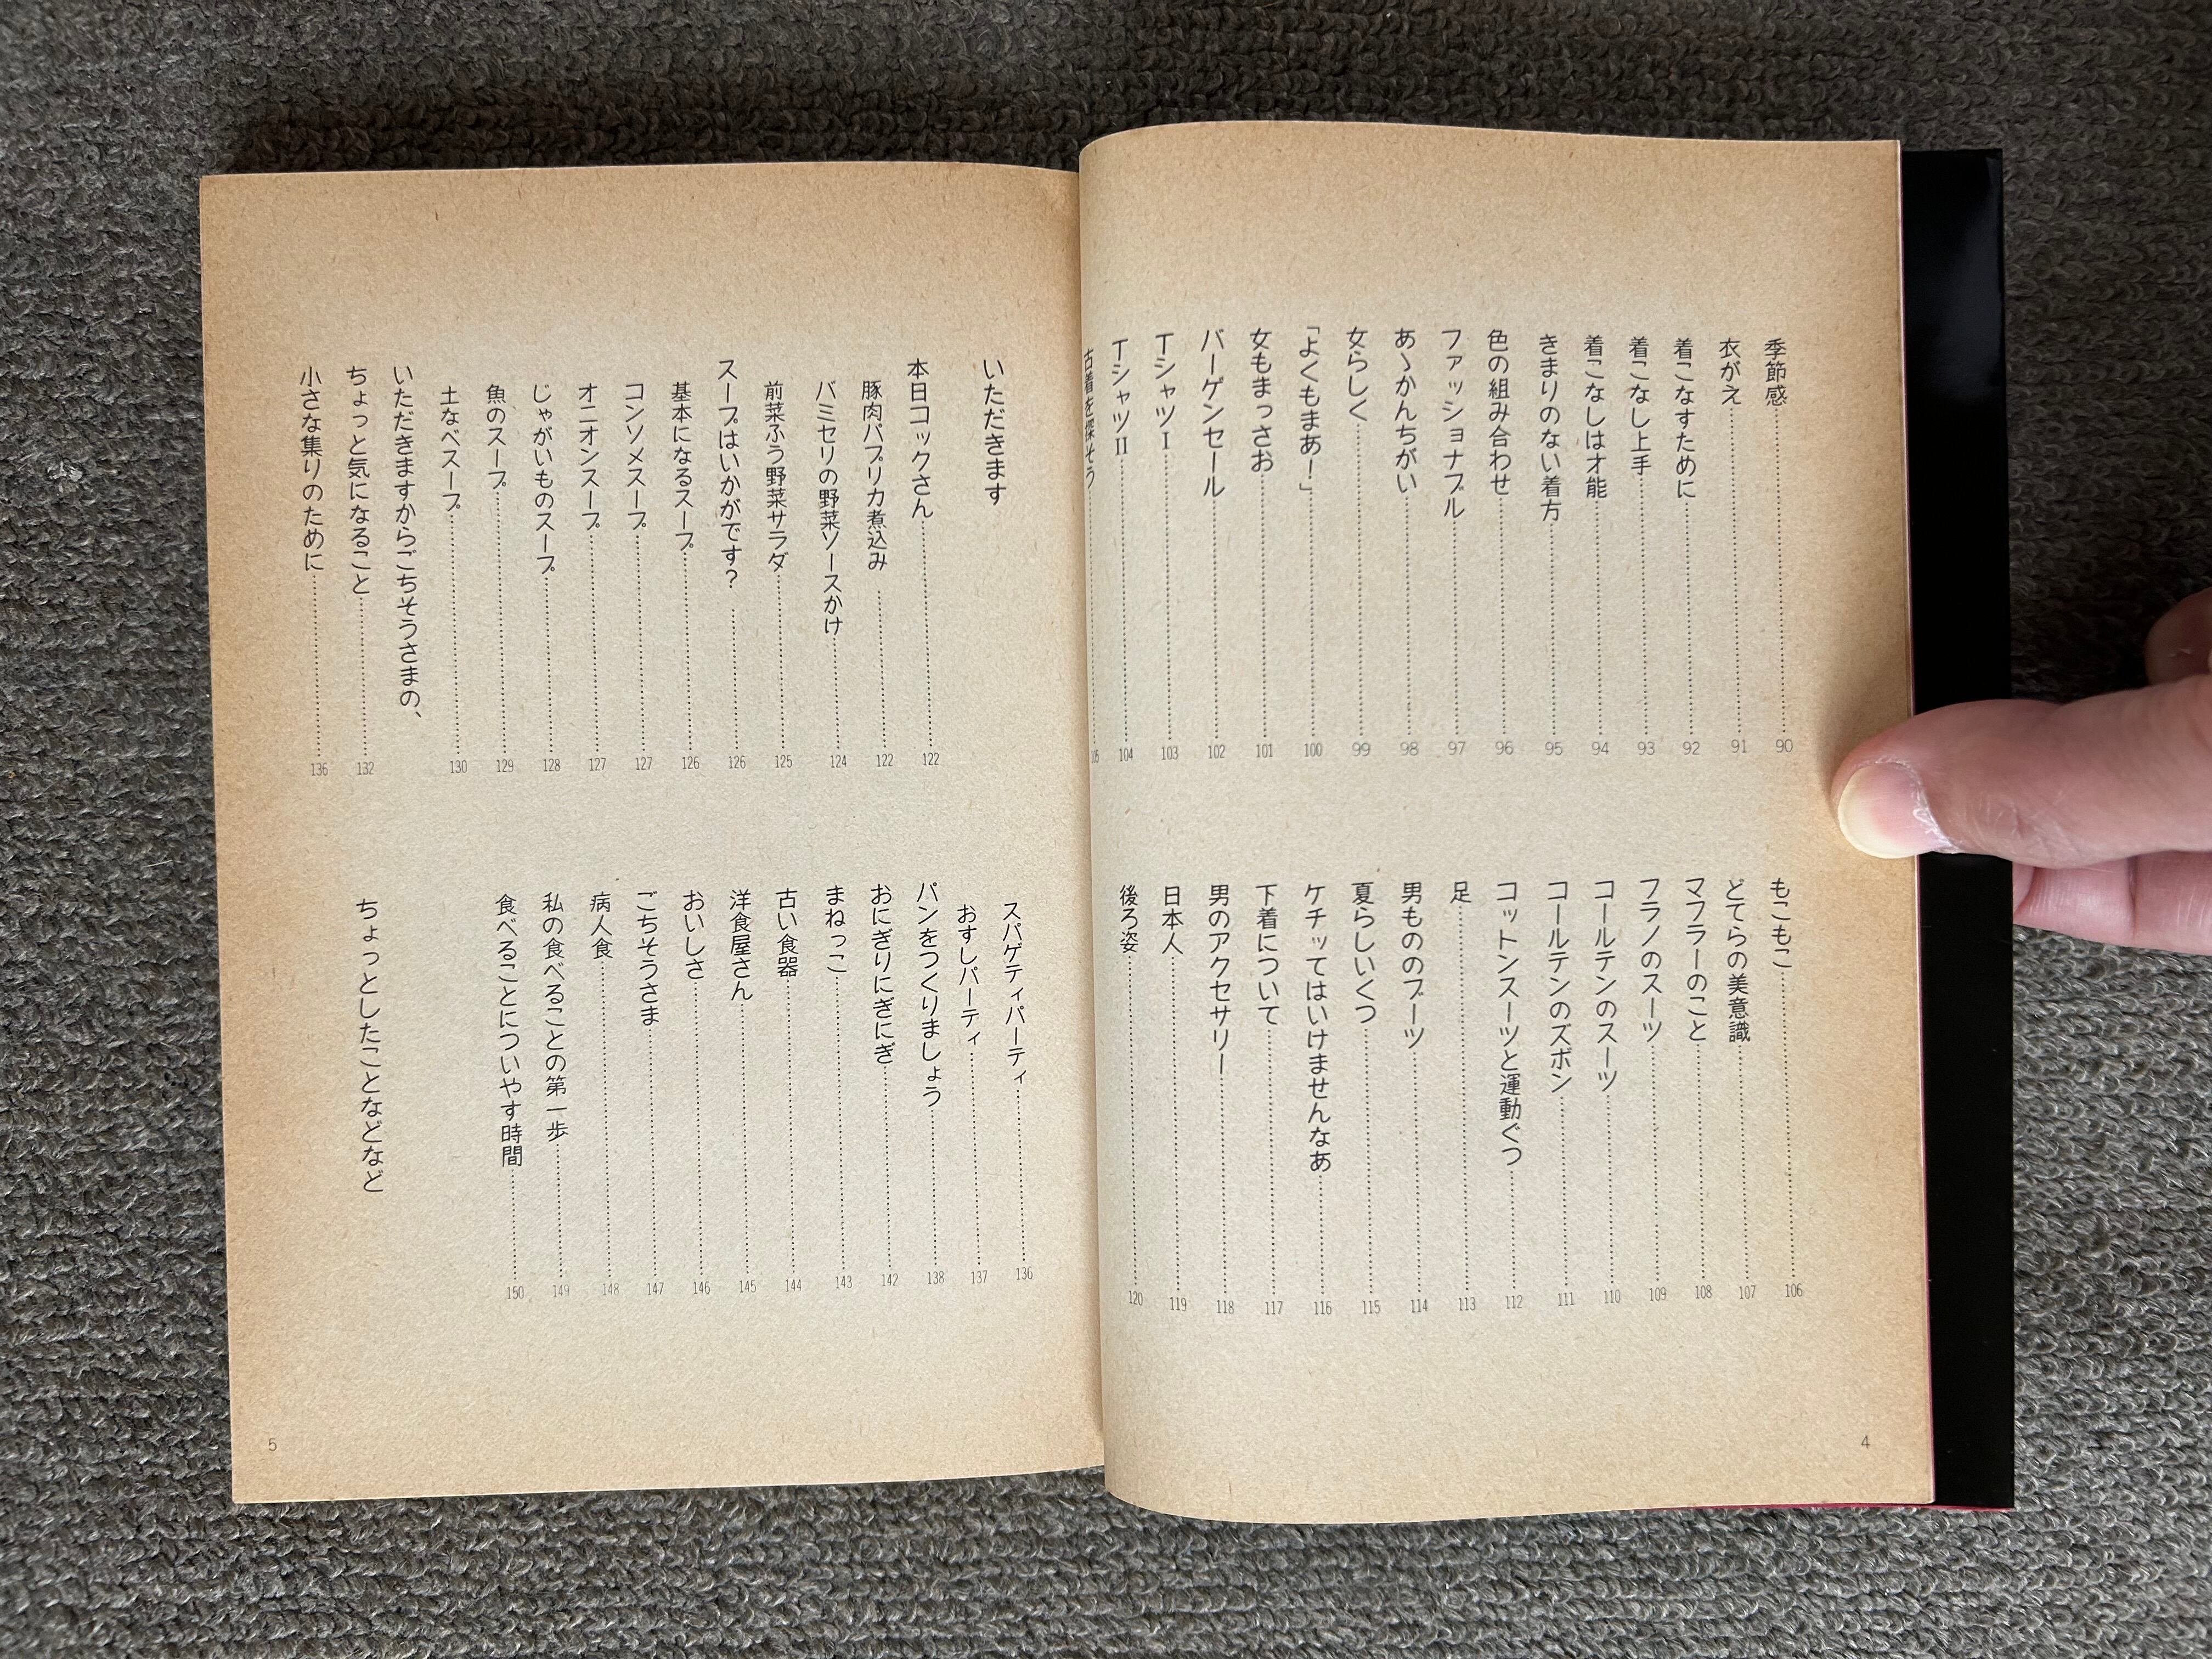 季節感……90
衣がえ……91
着こなすために……92
着こなし上手……93
着こなしは才能……94
きまりのない着方……95
色の組み合わせ……96
ファッショナブル……97
あゝかんちがい……98
女らしく……99
「よくもまあ！」……100
女もまっさお……101
バーゲンセール……102
TシャツⅠ……103
TシャツⅡ……104
古着を探そう……105
もこもこ……106
どてらの美意識……107
マフラーのこと……108
フラノのスーツ……109
コールテンのスーツ……110
コールテンのズボン……111
コットンスーツと運動ぐつ……112
足……113
男もののブーツ……114
夏らしいくつ……115
ケチッてはいけませんなあ……116
下着について……117
男のアクセサリー……118
日本人……119
後ろ姿……120
4
いただきます
本日コックさん……122
豚肉パプリカ煮込み……122
バミセリの野菜ソースかけ……124
前菜ふう野菜サラダ……125
スープはいかがです？……126
基本になるスープ……126
コンソメスープ……127
オニオンスープ……127
じゃがいものスープ……128
魚のスープ……129
土なべスープ……130
いただきますからごちそうさまの、
ちょっと気になること……132
小さな集りのために……136
スパゲティパーティ……136
おすしパーティ……137
パンをつくりましょう……138
おにぎりにぎにぎ……142
まねっこ……143
古い食器……144
洋食屋さん……145
おいしさ……146
ごちそうさま……147
病人食……148
私の食べることの第一歩……149
食べることについやす時間……150
ちょっとしたことなどなど
5